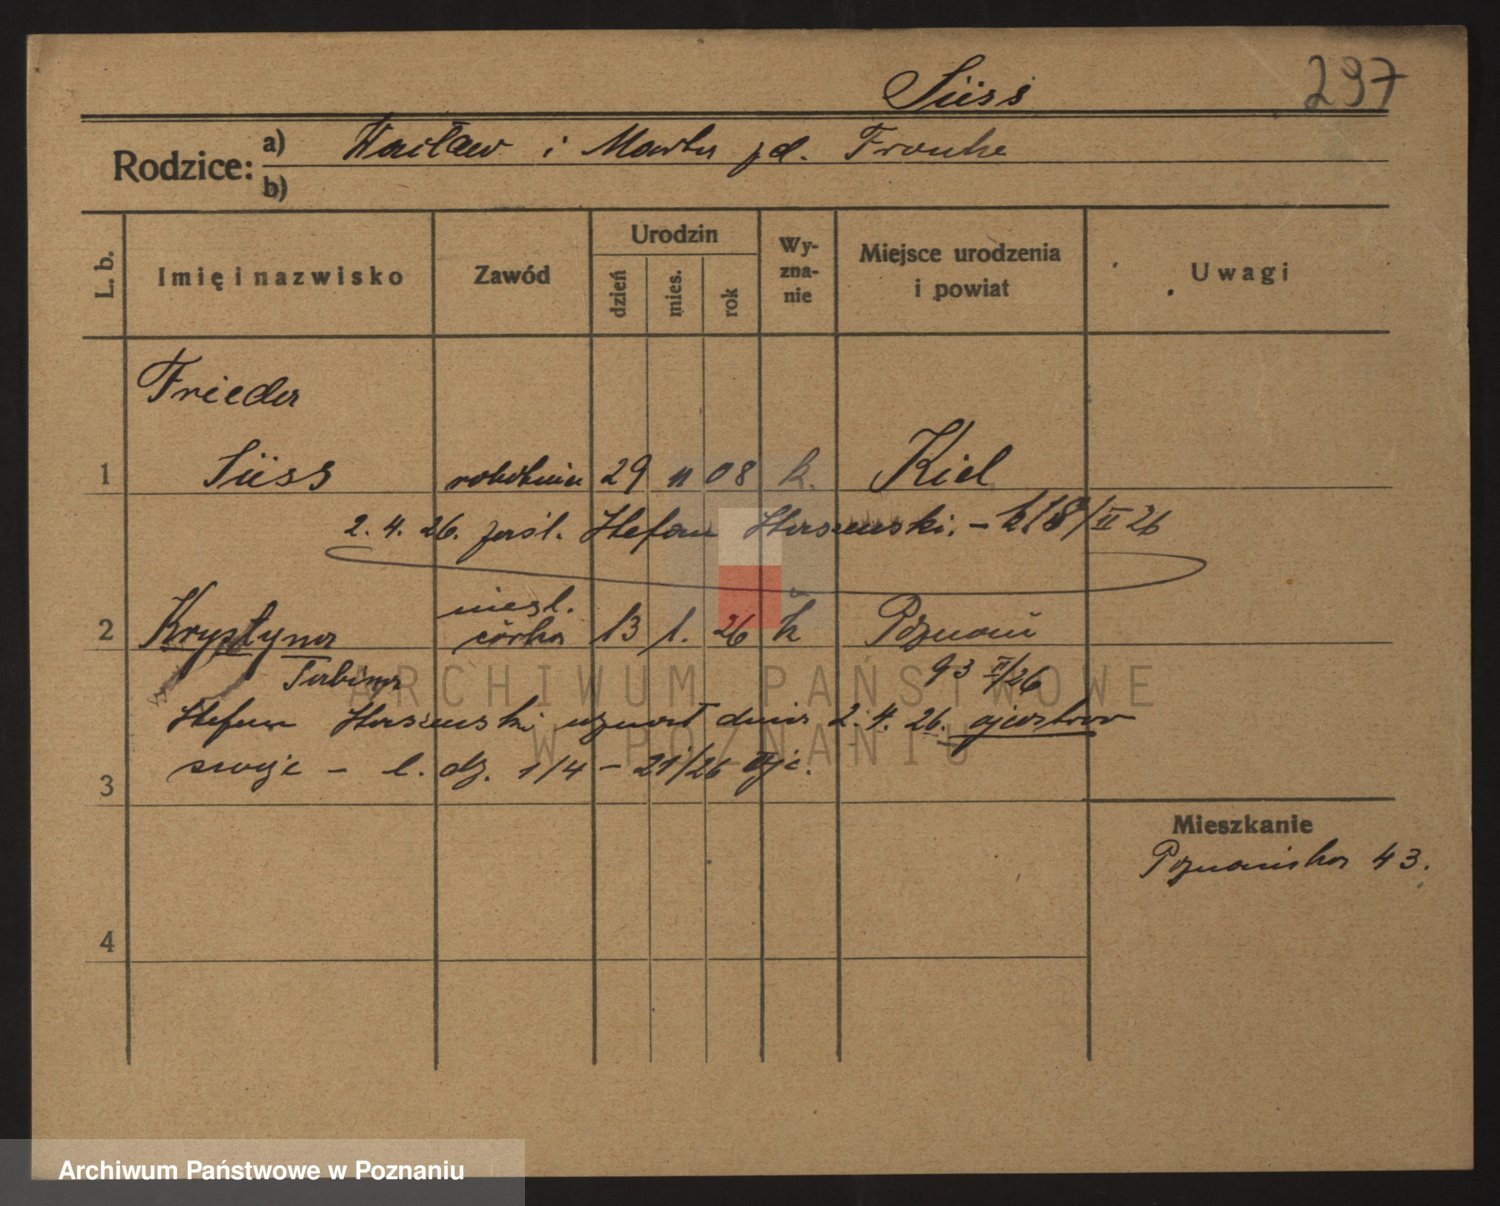 Süss 237
Rodzice: a) Wacław i Marta zd. Franke
b)
L. b. Imię i nazwisko Zawód Urodzin dzień mies. rok Wy-zna-nie Miejsce urodzenia i powiat Uwagi
Frieda
1 Süss robotnica 29 11 08 k. Kiel
2. 4. 26. zaśl. Stefan Staszewski. – /II 26
nieśl.
2 Krystyna córka 13 1. 26 k Poznań
Sabina 93 II/26
Stefan Staszewski uznał dnia 2. 4. 26. ojcostwo
swoje – l. dz. 1/4 – 21/26
3
Mieszkanie
Poznańska 43.
4
ARCHIWUM PAŃSTWOWE
W POZNANIU
Archiwum Państwowe w Poznaniu